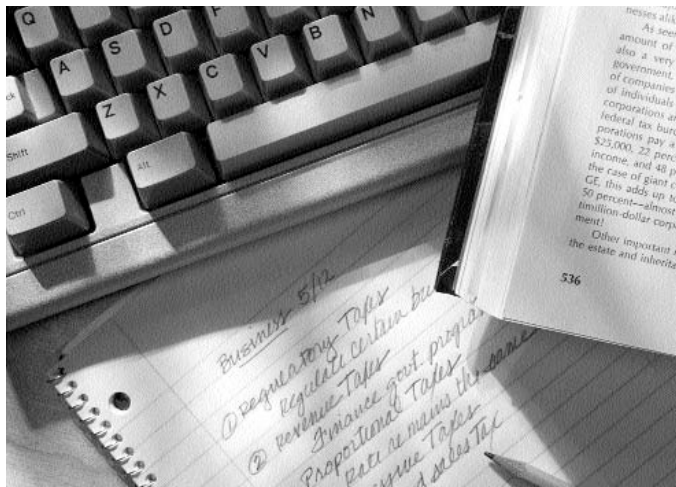 Q W E R T
A S D F G H J
Z X C V B N
Shift
Ctrl
Alt
nesses alik
As seen
amount of
also a very
government,
of companies
of individuals
corporations an
federal tax burd
porations pay a
$25,000, 22 perc
income, and 48 p
the case of giant c
GE, this adds up to
50 percent—almost
timillion-dollar corpo
ment!
Other important
the estate and inherita
536
Business 5/12
① Regulatory Taxes
Regulate certain bu
② Revenue Taxes
Finance govt. program
Proportional Taxes
Rate remains the same
Taxes
sales Tax